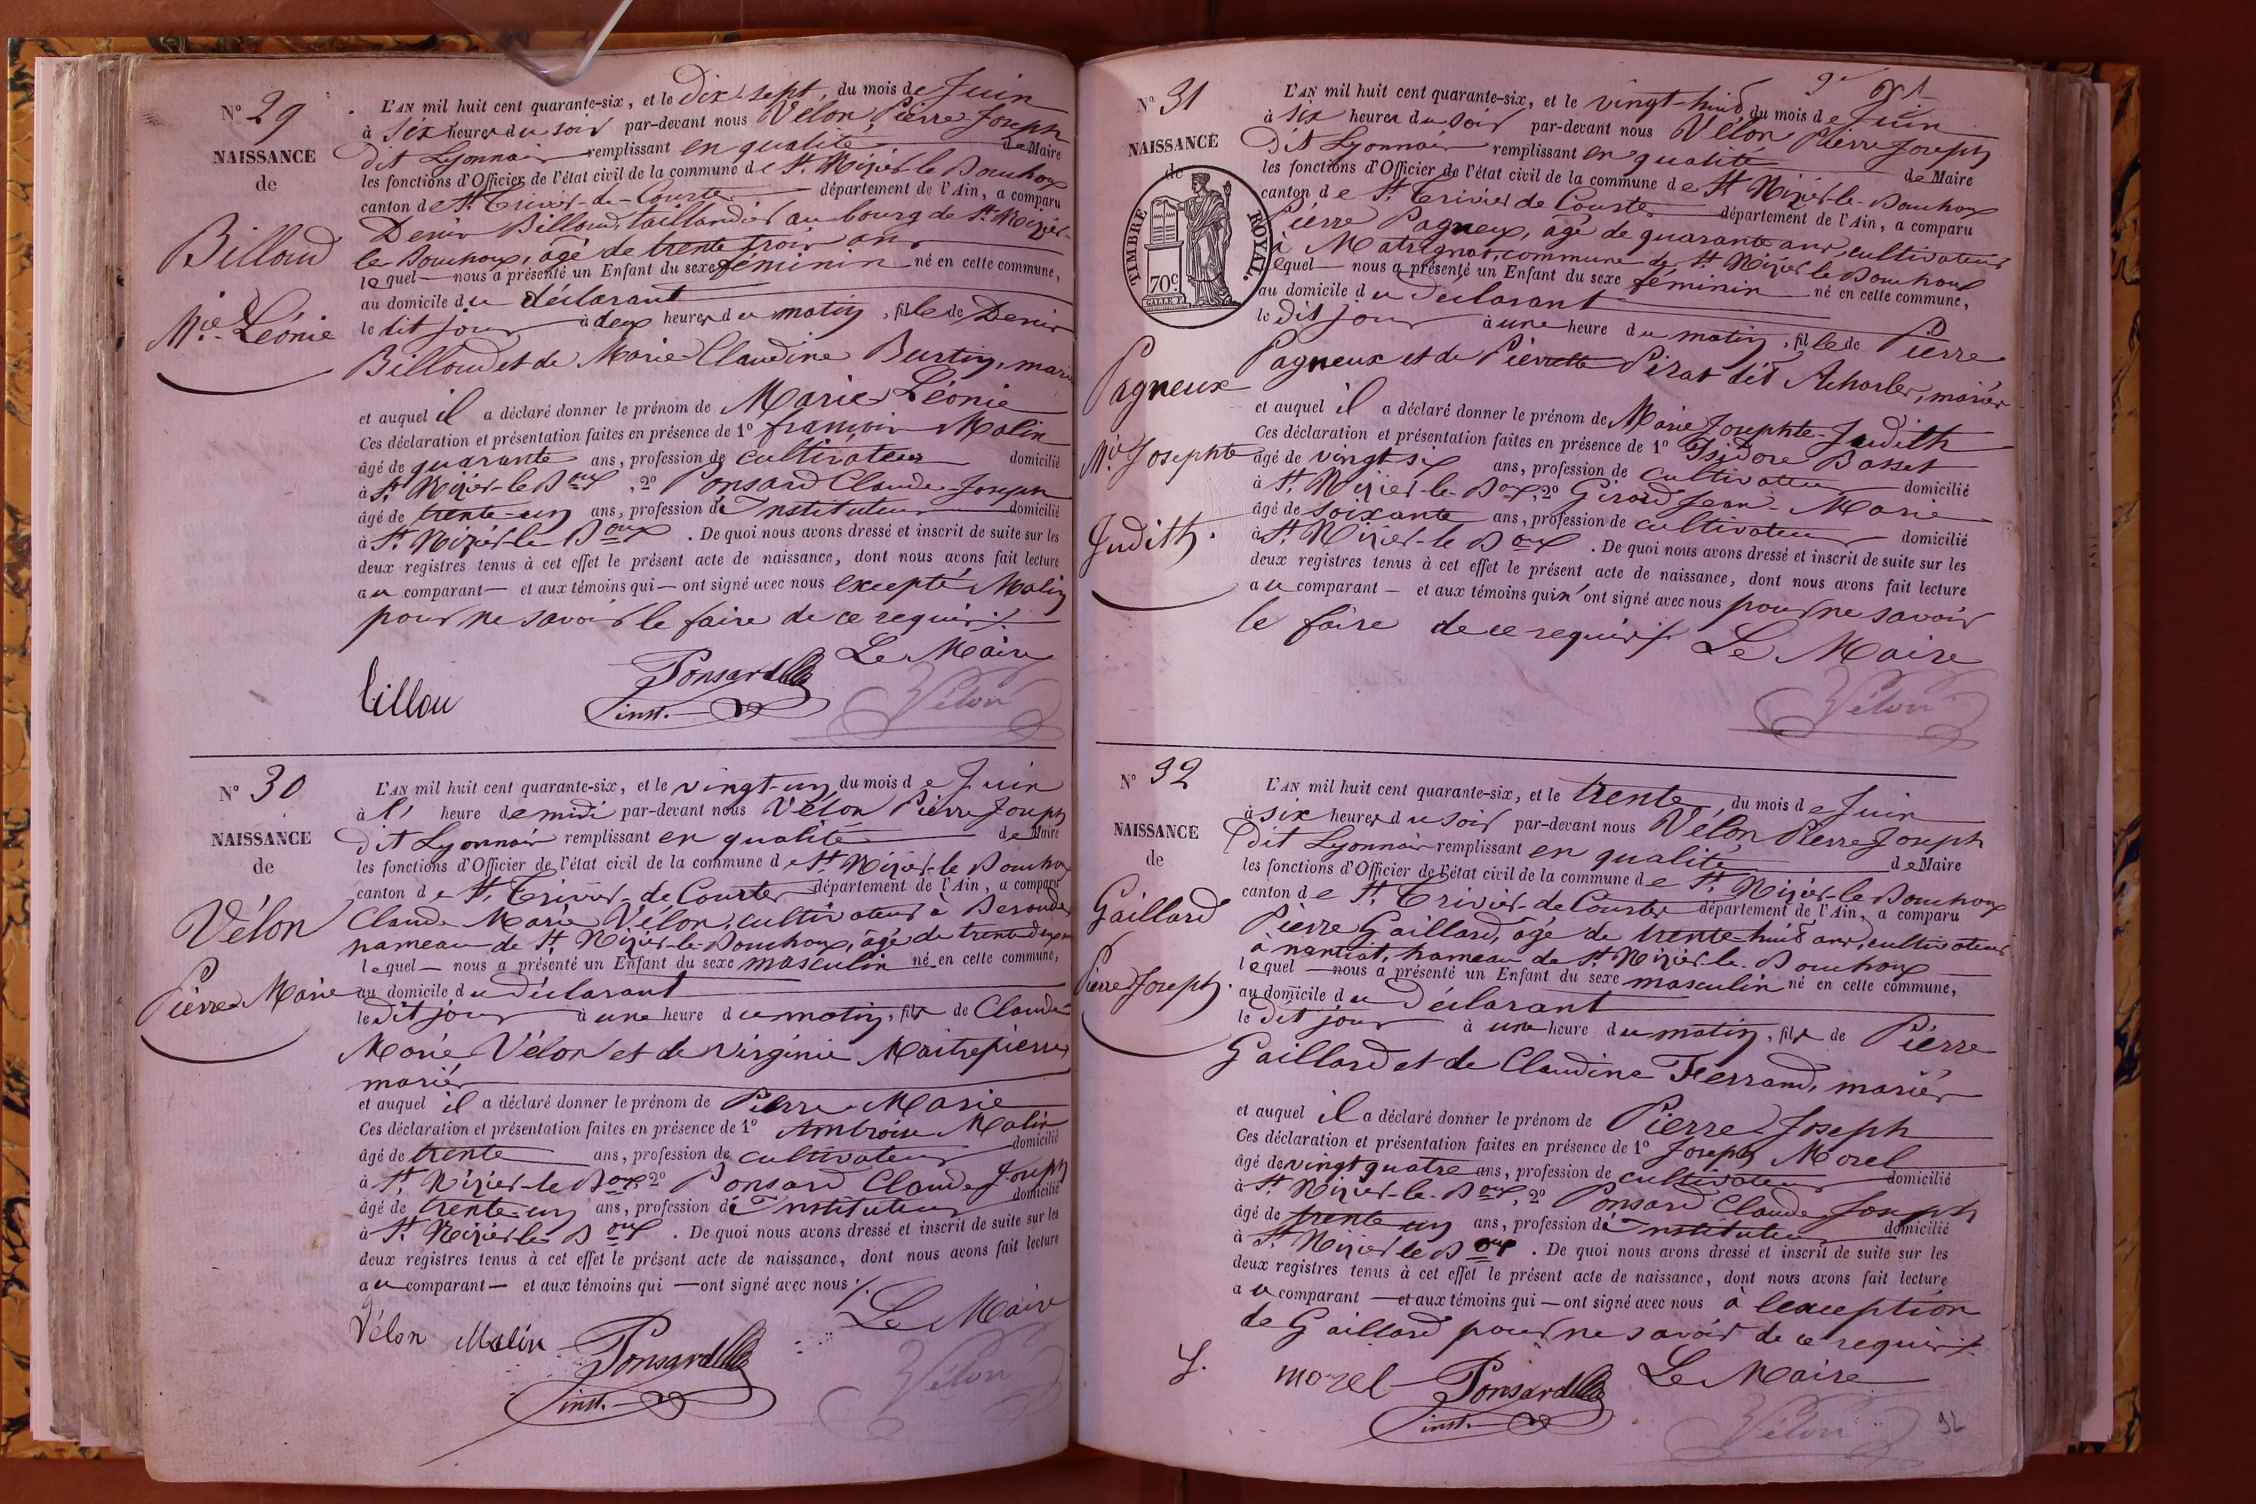 N° 29
NAISSANCE
de
Billoud
Mie Léonie
L'AN mil huit cent quarante-six, et le Dix-sept, du mois de Juin
à Six heures du soir par-devant nous Vélon Pierre Joseph
dit Lyonnais remplissant en qualité de Maire
les fonctions d'Officier de l'état civil de la commune de St. Nizier-le-Bouchoux
canton de St. Trivier-de-Courtes département de l'Ain, a comparu
Denis Billoud, taillandier au bourg de St. Nizier-
le-Bouchoux, âgé de trente trois ans
lequel nous a présenté un Enfant du sexe féminin né en cette commune,
au domicile du déclarant
le dit jour à deux heures du matin, fille de Denis
Billoud et de Marie-Claudine Burtin, mariés
et auquel il a déclaré donner le prénom de Marie Léonie
Ces déclaration et présentation faites en présence de 1° françois Malin
âgé de quarante ans, profession de cultivateur domicilié
à St. Nizier-le-Boux, 2° Ponsard Claude Joseph
âgé de trente-un ans, profession d'Instituteur domicilié
à St. Nizier-le-Boux. De quoi nous avons dressé et inscrit de suite sur les
deux registres tenus à cet effet le présent acte de naissance, dont nous avons fait lecture
au comparant et aux témoins qui ont signé avec nous excepté Malin
pour ne savoir le faire de ce requis./.
Le Maire
billou
Ponsard
inst.
Vélon
N° 30
NAISSANCE
de
Vélon
Pierre Marie
L'AN mil huit cent quarante-six, et le vingt-un, du mois de Juin
à l' heure de midi par-devant nous Vélon Pierre Joseph
dit Lyonnais remplissant en qualité de Maire
les fonctions d'Officier de l'état civil de la commune de St. Nizier-le-Bouchoux
canton de St. Trivier-de-Courtes département de l'Ain, a comparu
Claude Marie Vélon, cultivateur à
hameau de St. Nizier-le-Bouchoux, âgé de trente deux ans
lequel nous a présenté un Enfant du sexe masculin né en cette commune,
au domicile du déclarant
le dit jour à une heure du matin, fils de Claude
Marie Vélon et de Virginie Maitrepierre
mariés
et auquel il a déclaré donner le prénom de Pierre Marie
Ces déclaration et présentation faites en présence de 1° Ambroise Malin
âgé de trente ans, profession de cultivateur domicilié
à St. Nizier-le-Boux 2° Ponsard Claude Joseph
âgé de trente-un ans, profession d'Instituteur domicilié
à St. Nizier-le-Boux. De quoi nous avons dressé et inscrit de suite sur les
deux registres tenus à cet effet le présent acte de naissance, dont nous avons fait lecture
au comparant et aux témoins qui ont signé avec nous./.
Le Maire
Vélon Malin Ponsard
inst.
Vélon
N° 31
NAISSANCE
de
TIMBRE ROYAL.
70c
Pagneux
Mie Josephte
Judith.
L'AN mil huit cent quarante-six, et le vingt-huit du mois de Juin
à six heures du soir par-devant nous Vélon Pierre Joseph
dit Lyonnais remplissant en qualité de Maire
les fonctions d'Officier de l'état civil de la commune de St. Nizier-le-Bouchoux
canton de St. Trivier de Courtes département de l'Ain, a comparu
Pierre Pagneux, âgé de quarante ans, cultivateur
à Matrignat, commune de St. Nizier le Bouchoux
lequel nous a présenté un Enfant du sexe féminin né en cette commune,
au domicile du déclarant
le dit jour à une heure du matin, fille de Pierre
Pagneux et de Pierrette Pirat dit Acharles, mariés
et auquel il a déclaré donner le prénom de Marie Josephte Judith
Ces déclaration et présentation faites en présence de 1° Isidore Basset
âgé de vingt six ans, profession de cultivateur domicilié
à St. Nizier-le-Boux, 2° Girard Jean-Marie
âgé de soixante ans, profession de cultivateur domicilié
à St. Nizier-le Boux. De quoi nous avons dressé et inscrit de suite sur les
deux registres tenus à cet effet le présent acte de naissance, dont nous avons fait lecture
au comparant et aux témoins qui n'ont signé avec nous pour ne savoir
le faire de ce requis./. Le Maire
Vélon
N° 32
NAISSANCE
de
Gaillard
Pierre Joseph.
L'AN mil huit cent quarante-six, et le trente, du mois de Juin
à six heures du soir par-devant nous Vélon Pierre Joseph
dit Lyonnais remplissant en qualité de Maire
les fonctions d'Officier de l'état civil de la commune de St. Nizier-le-Bouchoux
canton de St. Trivier-de-Courtes département de l'Ain, a comparu
Pierre Gaillard, âgé de trente-huit ans, cultivateur
à nantiat, hameau de St. Nizier-le-Bouchoux
lequel nous a présenté un Enfant du sexe masculin né en cette commune,
au domicile du déclarant
le dit jour à une heure du matin, fils de Pierre
Gaillard et de Claudine Ferrand, mariés
et auquel il a déclaré donner le prénom de Pierre Joseph
Ces déclaration et présentation faites en présence de 1° Joseph Morel
âgé de vingt quatre ans, profession de cultivateur domicilié
à St. Nizier-le-Boux, 2° Ponsard Claude Joseph
âgé de trente un ans, profession d'Instituteur domicilié
à St. Nizier le Boux. De quoi nous avons dressé et inscrit de suite sur les
deux registres tenus à cet effet le présent acte de naissance, dont nous avons fait lecture
au comparant et aux témoins qui ont signé avec nous à l'exception
de Gaillard pour ne savoir de ce requis./.
J. morel Ponsard Le Maire
inst.
Vélon